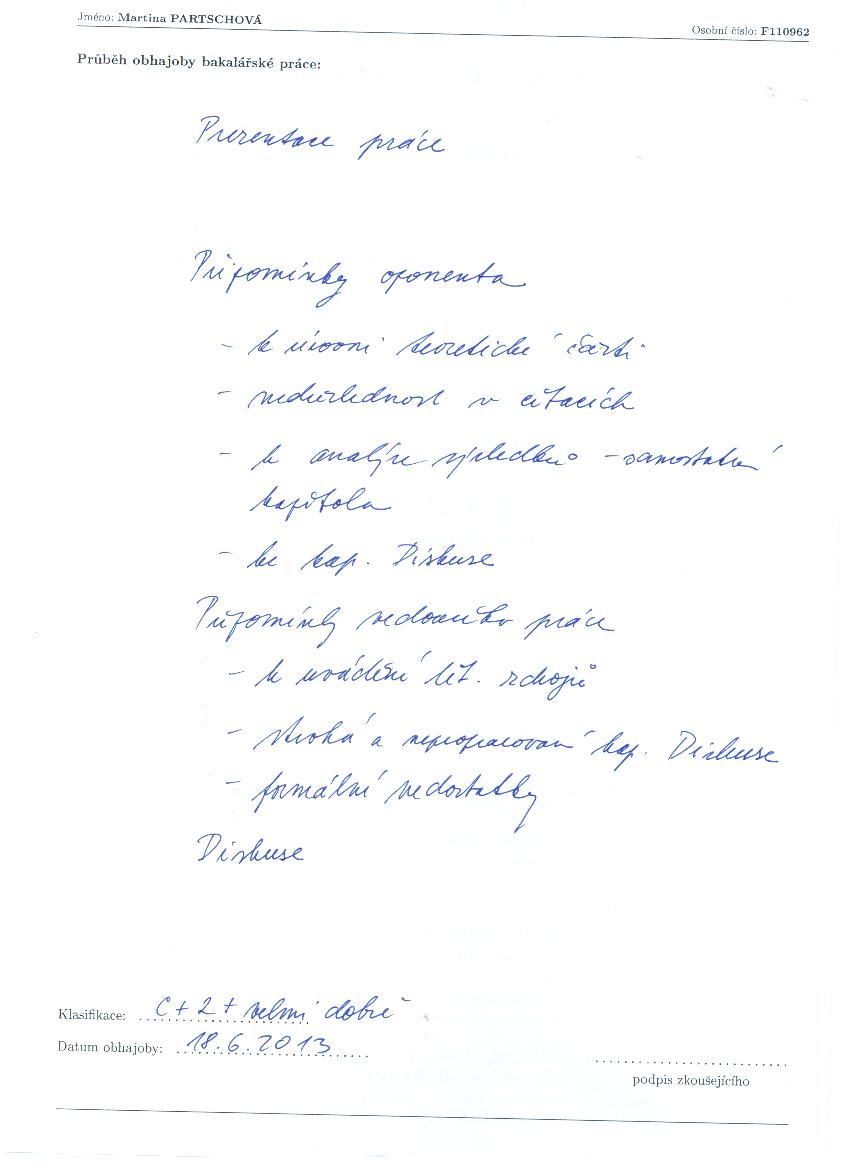 Jméno: Martina PARTSCHOVÁ
Osobní číslo: F110962
Průběh obhajoby bakalářské práce:
Prezentace práce
Připomínky oponenta
- k úrovni teoretické části
- nedůslednost v citacích
- k analýze výsledků - samostatná
kapitola
- ke kap. Diskuse
Připomínky vedoucího práce
- k uvádění lit. zdrojů
- strohá a nepropracovaná kap. Diskuse
- formální nedostatky
Diskuse
Klasifikace: C + 2 + velmi dobře
Datum obhajoby: 18.6.2013
podpis zkoušejícího